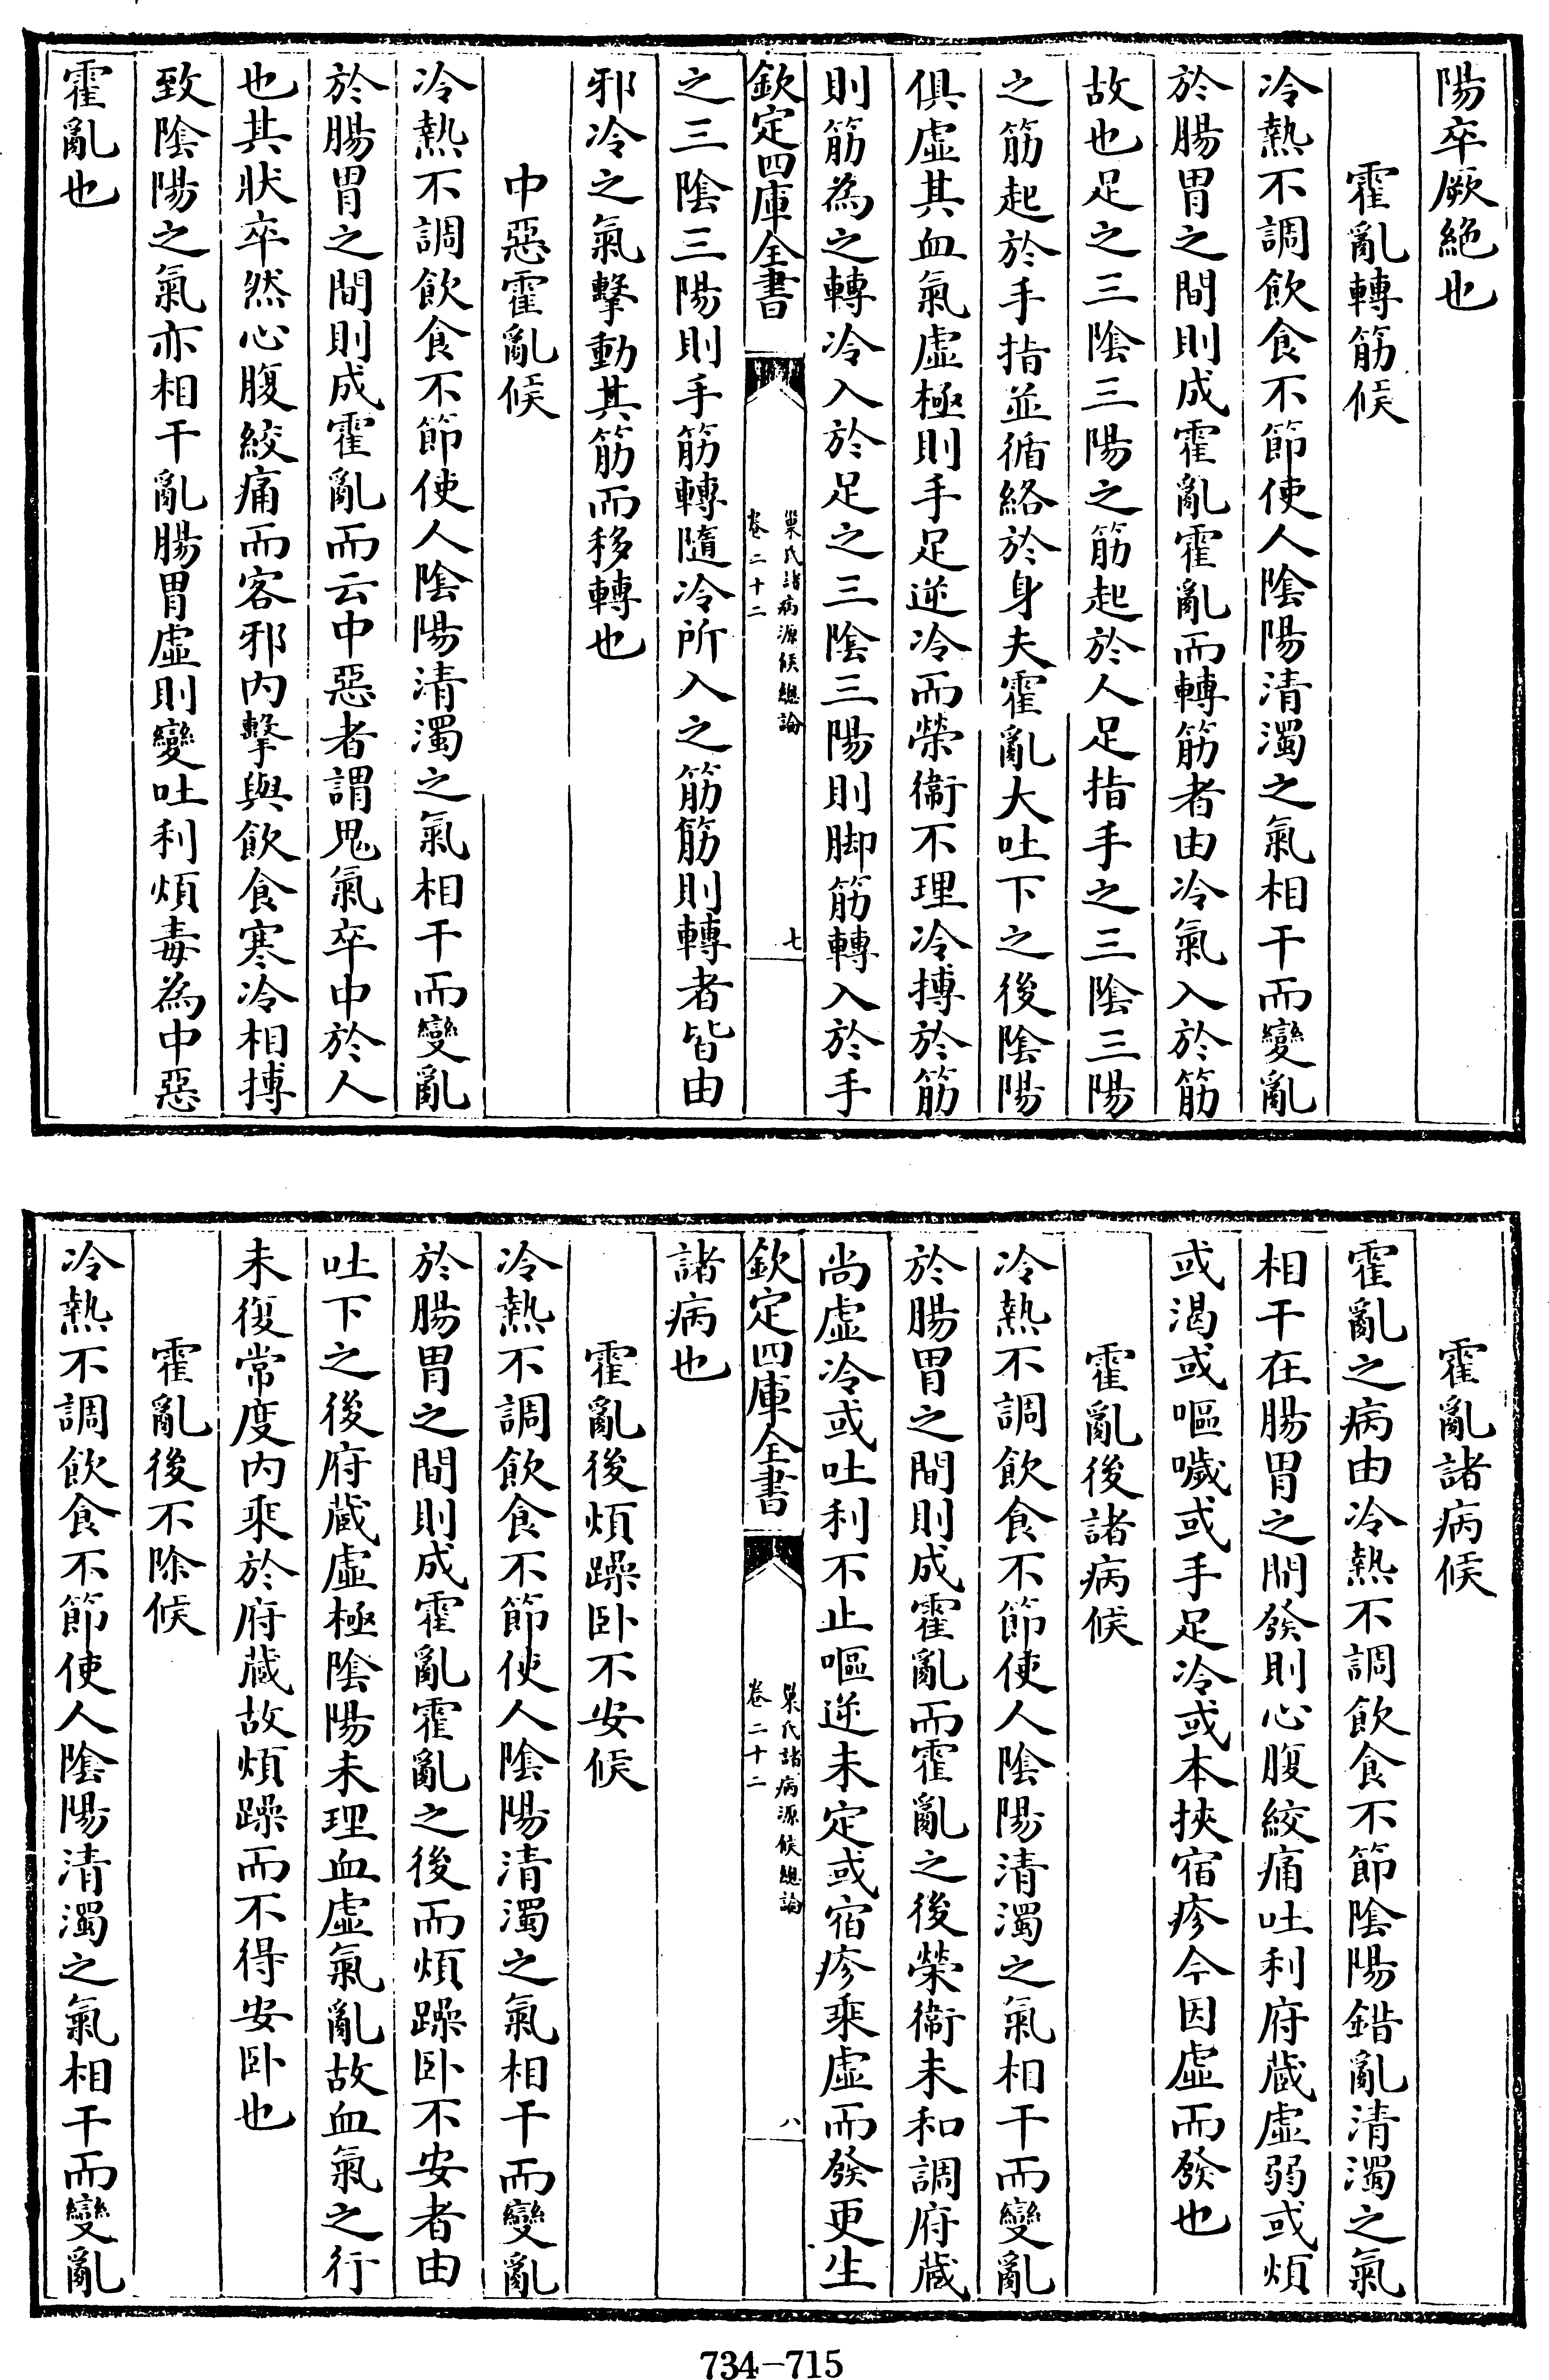 陽卒厥絶也
霍亂轉筋候
冷熱不調飲食不節使人陰陽清濁之氣相干而變亂
於腸胃之間則成霍亂霍亂而轉筋者由冷氣入於筋
故也足之三陰三陽之筋起於人足指手之三陰三陽
之筋起於手指並循絡於身夫霍亂大吐下之後陰陽
俱虚其血氣虚極則手足逆冷而榮衛不理冷搏於筋
則筋為之轉冷入於足之三陰三陽則脚筋轉入於手
欽定四庫全書
巢氏諸病源候總論
卷二十二
七
之三陰三陽則手筋轉隨冷所入之筋筋則轉者皆由
邪冷之氣擊動其筋而移轉也
中惡霍亂候
冷熱不調飲食不節使人陰陽清濁之氣相干而變亂
於腸胃之間則成霍亂而云中惡者謂鬼氣卒中於人
也其狀卒然心腹絞痛而客邪内擊與飲食寒冷相搏
致陰陽之氣亦相干亂腸胃虚則變吐利煩毒為中惡
霍亂也
霍亂諸病候
霍亂之病由冷熱不調飲食不節陰陽錯亂清濁之氣
相干在腸胃之間發則心腹絞痛吐利府蔵虚弱或煩
或渴或嘔噦或手足冷或本挾宿疹今因虚而發也
霍亂後諸病候
冷熱不調飲食不節使人陰陽清濁之氣相干而變亂
於腸胃之間則成霍亂而霍亂之後榮衛未和調府蔵
尚虚冷或吐利不止嘔逆未定或宿疹乘虚而發更生
欽定四庫全書
巢氏諸病源候總論
卷二十二
八
諸病也
霍亂後煩躁卧不安候
冷熱不調飲食不節使人陰陽清濁之氣相干而變亂
於腸胃之間則成霍亂霍亂之後而煩躁卧不安者由
吐下之後府蔵虚極陰陽未理血虚氣亂故血氣之行
未復常度内乘於府蔵故煩躁而不得安卧也
霍亂後不除候
冷熱不調飲食不節使人陰陽清濁之氣相干而變亂
734-715